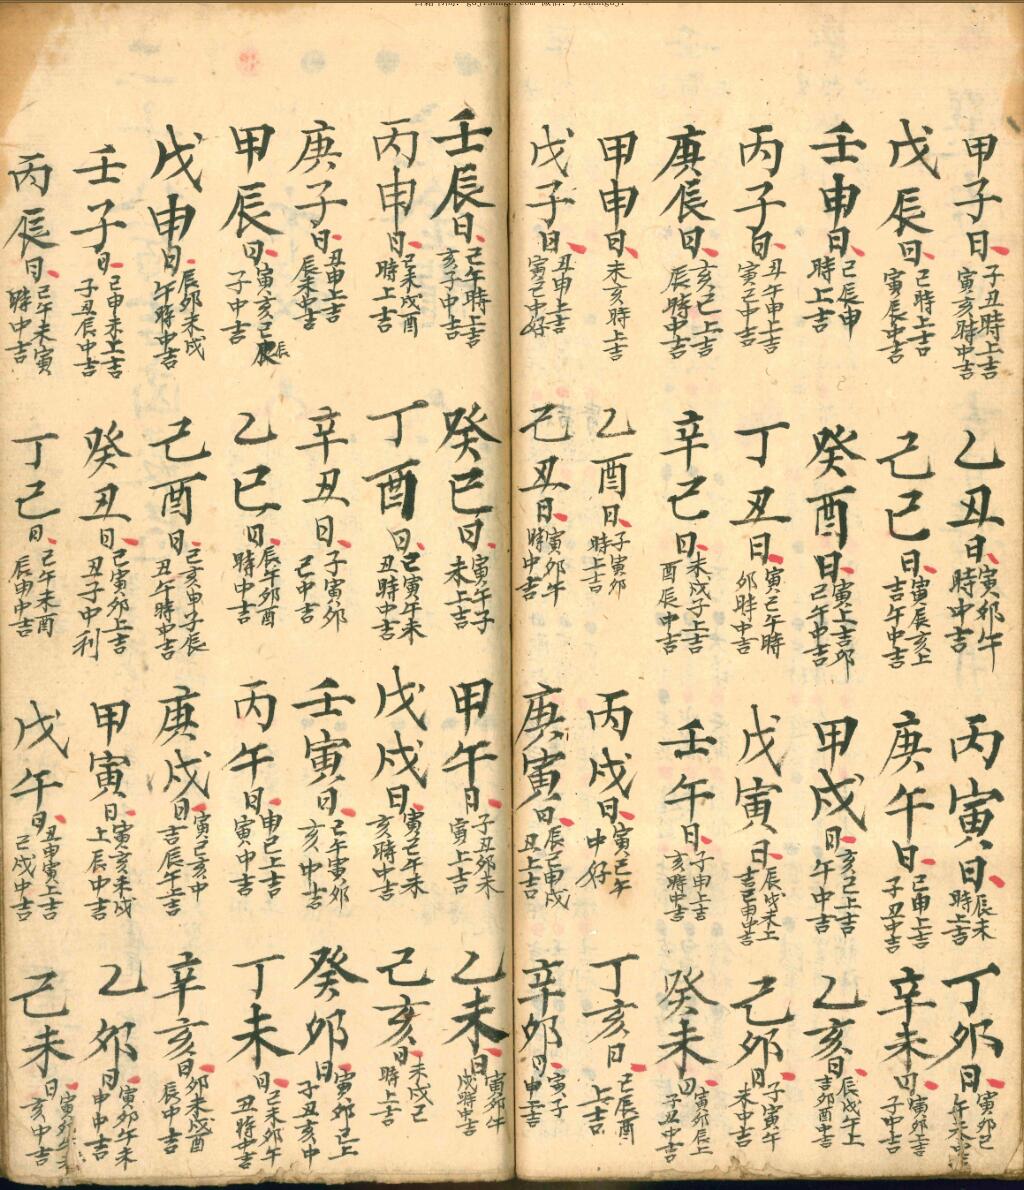 甲子日 子丑時上吉 寅亥時中吉
乙丑日 寅卯午 時中吉
丙寅日 辰未 時上吉
丁卯日 寅卯己 午未中吉
戊辰日 己時上吉 寅辰中吉
己巳日 寅辰亥上 吉午中吉
庚午日 己申上吉 子丑中吉
辛未日 寅卯上吉 子中吉
壬申日 己辰申 時上吉
癸酉日 寅上吉卯 己午中吉
甲戌日 亥己上吉 午中吉
乙亥日 辰戌午上 吉卯酉中吉
丙子日 丑午申上吉 寅己中吉
丁丑日 寅己午時 卯時中吉
戊寅日 辰戌未上 吉己申中吉
己卯日 子寅午 未中吉
庚辰日 亥己上吉 辰時中吉
辛巳日 未戌子上吉 酉辰中吉
壬午日 子申上吉 亥時中吉
癸未日 寅卯辰上 子丑中吉
甲申日 未亥時上吉
乙酉日 子寅卯 時上吉
丙戌日 寅己午 中好
丁亥日 己辰酉 上吉
戊子日 丑申上吉 寅己中好
己丑日 寅卯午 時中吉
庚寅日 辰己申戌 丑上吉
辛卯日 寅子 申上吉
壬辰日 己午時上吉 亥子中吉
癸巳日 寅午子 未上吉
甲午日 子丑卯未 寅上吉
乙未日 寅卯午 戌時中吉
丙申日 己未戌酉 時上吉
丁酉日 己寅午未 丑時中吉
戊戌日 寅己午未 亥時中吉
己亥日 未戌己 時上吉
庚子日 丑申上吉 辰未中吉
辛丑日 子寅卯 己中吉
壬寅日 己午寅卯 亥中吉
癸卯日 寅卯己上 子丑亥中
甲辰日 寅亥己辰 子中吉
乙巳日 辰午卯酉 時中吉
丙午日 申己上吉 寅中吉
丁未日 己未卯午 丑時中吉
戊申日 辰卯未戌 午時中吉
己酉日 己亥申子辰 丑午時中吉
庚戌日 寅己亥中 吉辰午上吉
辛亥日 卯未戌酉 辰中吉
壬子日 己申未上吉 子丑辰中吉
癸丑日 己寅卯上吉 丑子中利
甲寅日 寅亥未戌 上辰中吉
乙卯日 寅卯午未 申中吉
丙辰日 己午未寅 時中吉
丁巳日 己午未酉 辰申中吉
戊午日 丑申寅上吉 己戌中吉
己未日 亥中吉